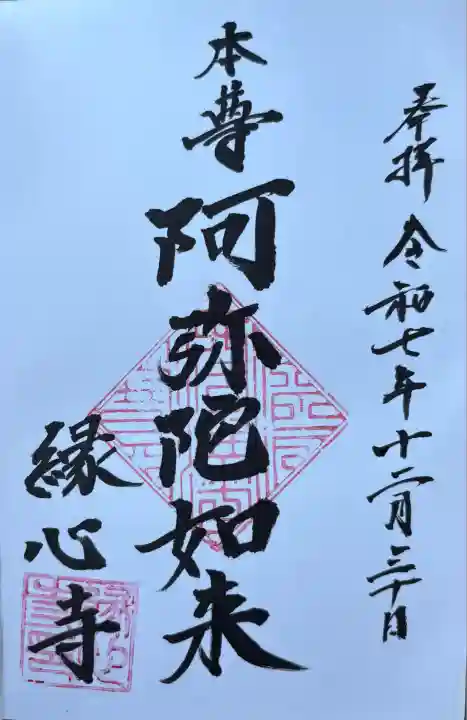 奉拝 令和七年十二月三十日
本尊 阿弥陀如来
縁心寺